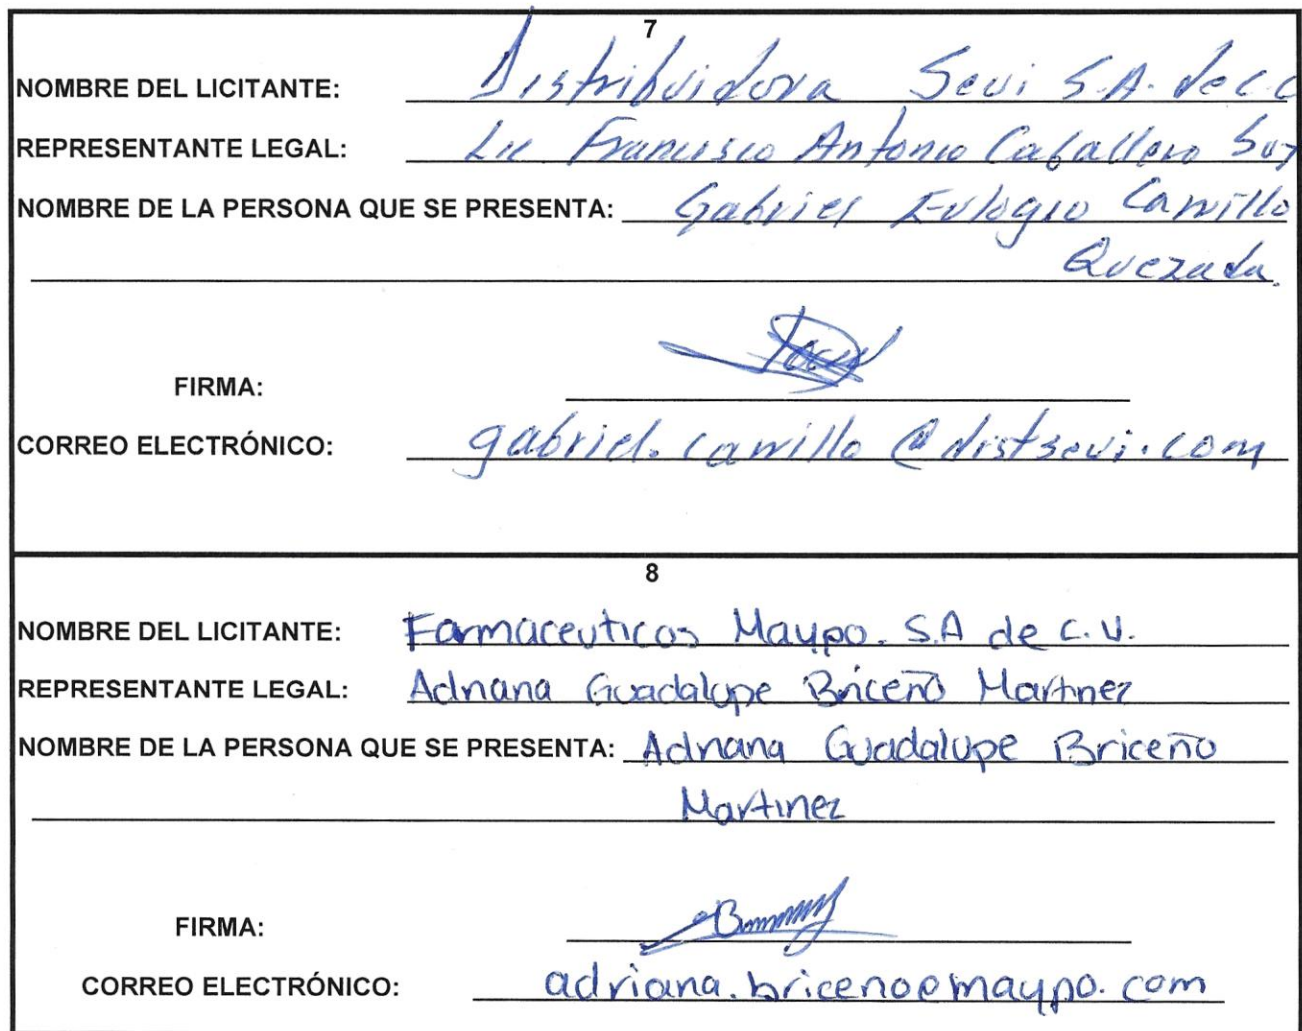 7
NOMBRE DEL LICITANTE: Distribuidora Sevi S.A. de C.
REPRESENTANTE LEGAL: Lic Francisco Antonio Caballero
NOMBRE DE LA PERSONA QUE SE PRESENTA: Gabriel Eulogio Carrillo
Quezada.
FIRMA:
CORREO ELECTRÓNICO: gabriel.carrillo@distsevi.com
8
NOMBRE DEL LICITANTE: Farmaceuticos Maypo. S.A de C.V.
REPRESENTANTE LEGAL: Adriana Guadalupe Briceño Martinez
NOMBRE DE LA PERSONA QUE SE PRESENTA: Adriana Guadalupe Briceño
Martinez
FIRMA:
CORREO ELECTRÓNICO: adriana.briceno@maypo.com